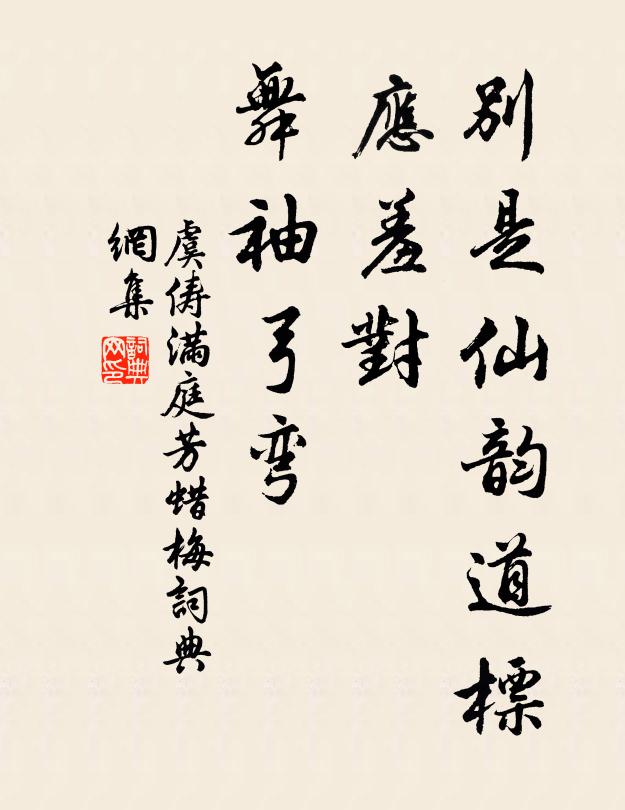 别是仙韵道標
應羞對
舞袖弓弯
虞俦满庭芳蜡梅詞典
網集
詞典
网印